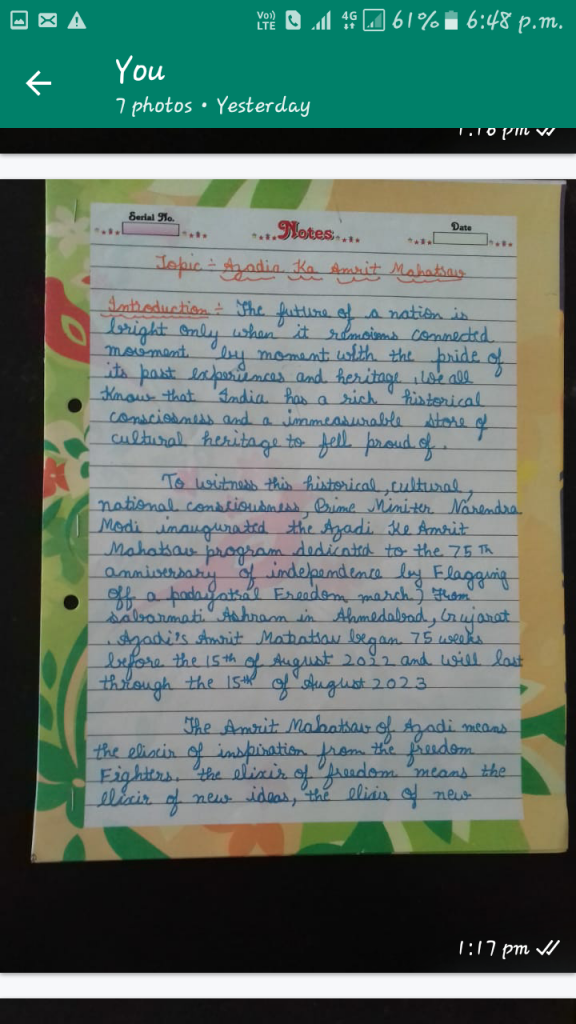 Vo)) LTE 4G 61% 6:48 p.m.
You
7 photos • Yesterday
1:16 pm
Serial No.
Notes
Date
Topic :- Azadia Ka Amrit Mahatsav
Introduction :- The future of a nation is
bright only when it remoims connected
movment by moment with the pride of
its past experiences and heritage, We all
Know that India has a rich historical
consciosness and a immeasurable store of
cultural heritage to fell proud of.
To witness this historical, cultural,
national consciousness, Prime Minister Narendra
Modi inaugurated the Azadi Ke Amrit
Mahatsav program dedicated to the 75 Th
anniversary of independence by Flagging
off a padayatra( Freedom march) From
sabarmati Ashram in Ahmedabad, Gujarat
. Azadi's Amrit Mahatsav began 75 weeks
before the 15th of August 2022 and will last
through the 15th of August 2023
The Amrit Mahatsav of Azadi means
the elixir of inspiration from the freedom
Fighters. the elixir of freedom means the
elixir of new ideas, the elixir of new
1:17 pm